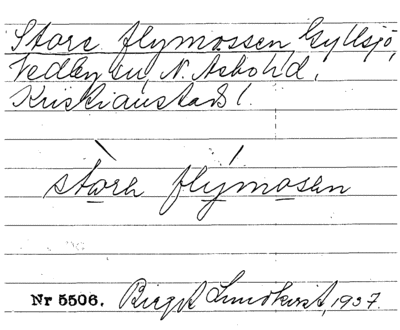 Store flymossen Gyllsjö,
Vedby sn, N. Åsbo hd.
Kristianstads l.
stòre flýmosen
Nr 5506. Birgit Lundkvist, 1937